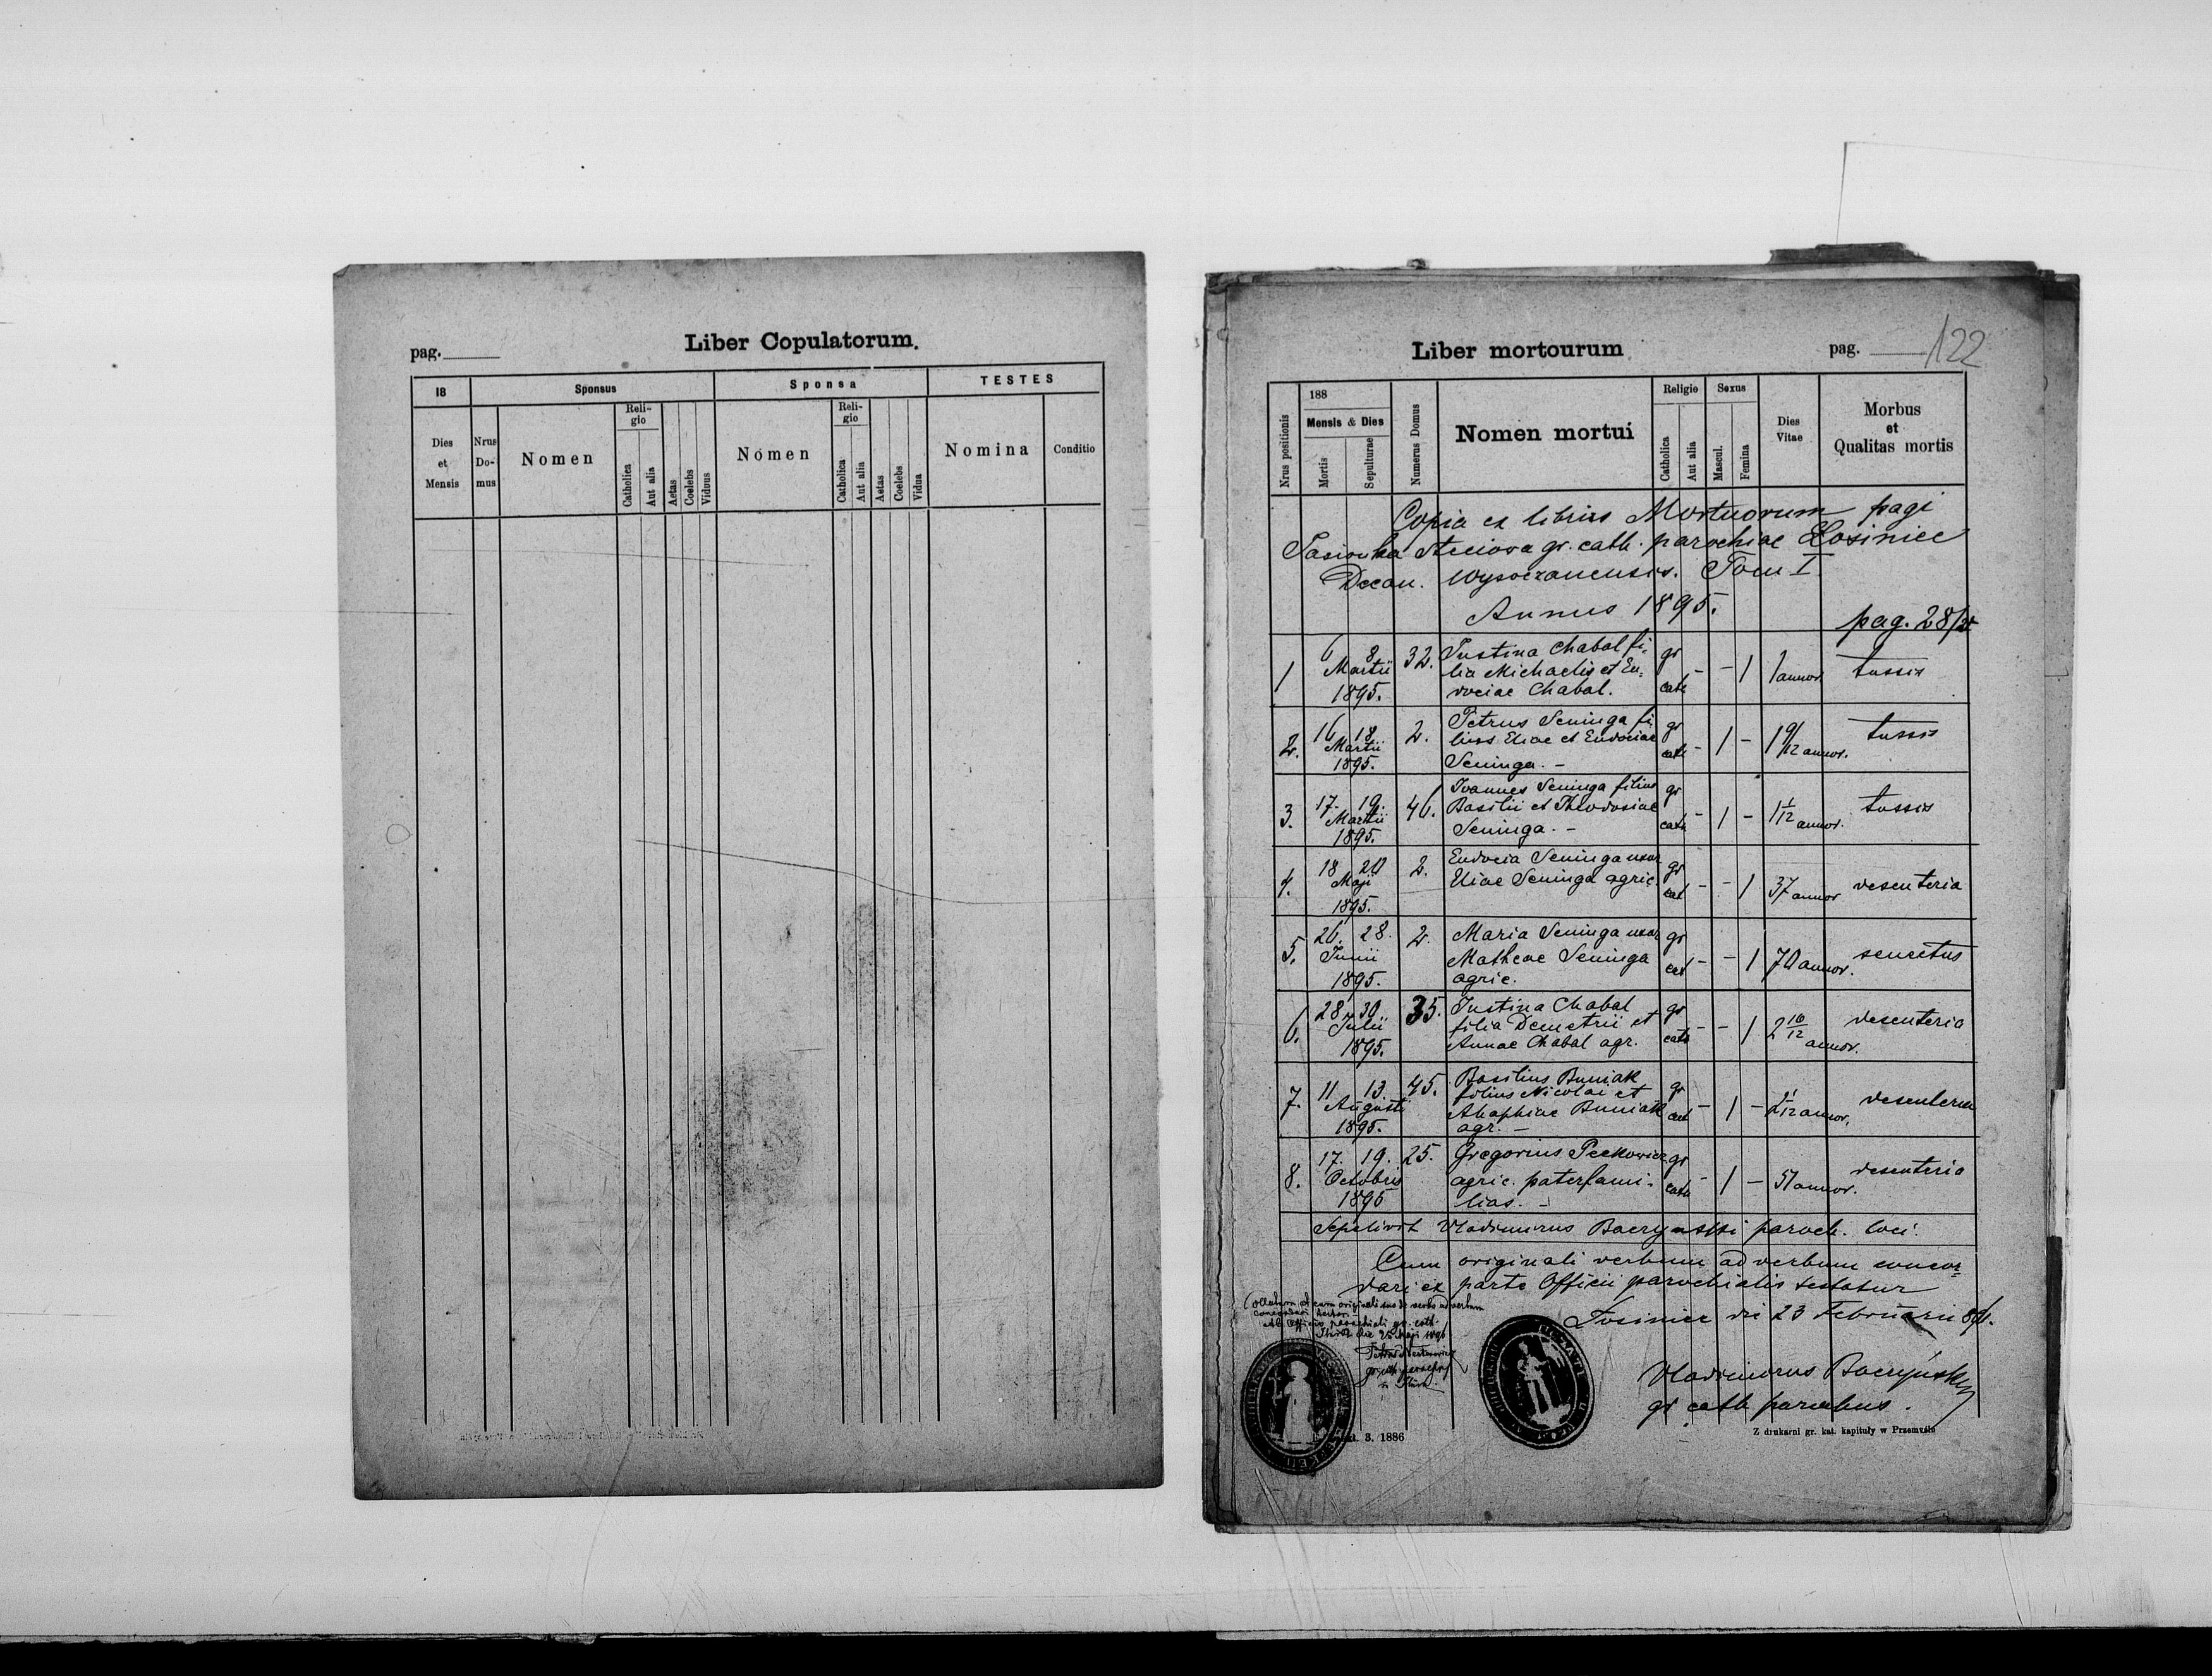 pag.
Liber Copulatorum.
18
Sponsus
Sponsa
TESTES
Dies et Mensis
Nrus Do- mus
Nomen
Reli- gio
Catholica
Aut alia
Aetas
Coelebs
Viduus
Nomen
Reli- gio
Catholica
Aut alia
Aetas
Coelebs
Vidua
Nomina
Conditio
Liber mortourum
pag. 122
Nrus positionis
188
Mensis & Dies
Mortis
Sepulturae
Numerus Domus
Nomen mortui
Religio
Catholica
Aut alia
Sexus
Mascul.
Femina
Dies Vitae
Morbus et Qualitas mortis
Copia ex libris Mortuorum pagi
Jasionka Steciova gr. cath. parochiae Łosiniec
Decan. Wysoczanensis. Tom I.
Annus 1895.
pag. 28
1 6 8 32. Justina Chabal fi- gr - - 1 1 annor. tussis
Martii lia Michaelis et Eu-
1895. dociae Chabal. cath
2. 16 18 2. Petrus Seninga fi- gr - 1 - 1 9/12 annor. tussis
Martii lius Eliae et Eudociae cath
1895. Seninga. -
3. 17. 19. 46. Ioannes Seninga filius gr - 1 - 1 1/12 annor. tussis
Martii Basilii et Theodosiae
1895. Seninga. - cath
4. 18 20 2. Eudocia Seninga uxor gr - - 1 37 annor desenteria
Maji Eliae Seninga agric. cat
1895.
5. 26. 28. 2. Maria Seninga uxor gr - - 1 70 annor. senectus
Junii Matheae Seninga cat
1895. agric.
6. 28 30 35. Justina Chabal gr - - 1 2 10/12 annor. desenteria
Julii filia Demetrii et
1895. Annae Chabal agr. cath
7. 11 13. 45. Basilius Buniak gr - 1 - 2 1/12 annor. desenteria
Augusti filius Nicolai et
1895. Ahaphiae Buniak cat
agr. -
8. 17. 19. 25. Gregorius Peckowicz gr - 1 - 51 annor. desenteria
Octobris agric. paterfami-
1895 lias. - cath
Sepelivit Vladimirus Baczyński paroch. loci.
Cum originali verbum ad verbum concor-
dari ex parte Officii parochialis testatur
Łosiniec die 23 Februarii 896.
Vladimirus Baczyński
gr cath parochus.
Collatum et cum originali suo de verbo ad verbum
concordari testor
ab Officio parochiali gr. cath.
die 25 Maji 1896
3. 1886
Z drukarni gr. kat. kapituły w Przemyślu